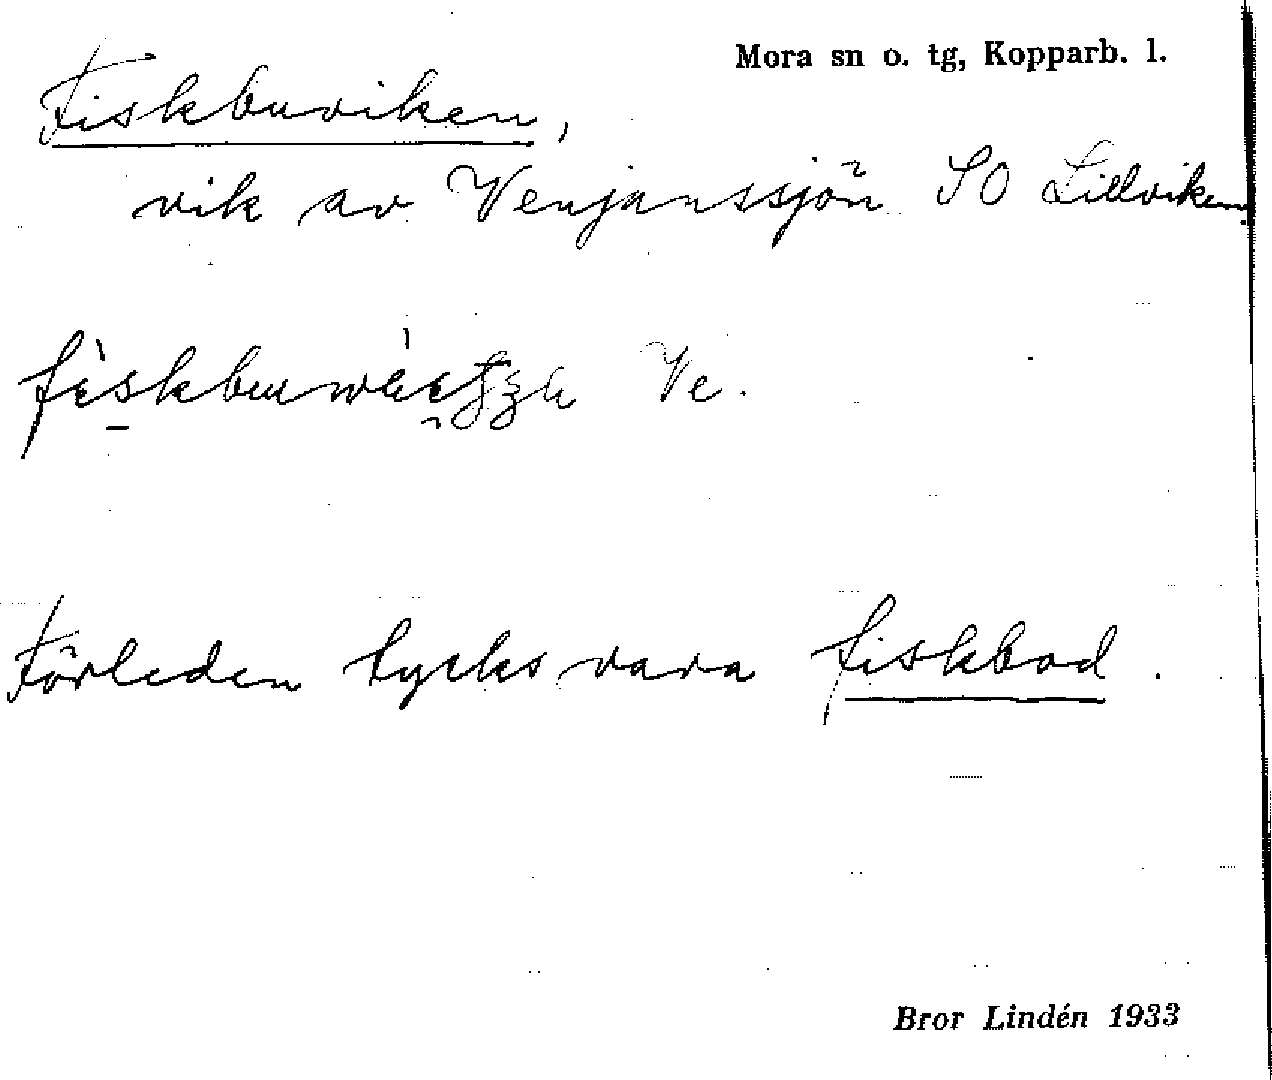 Mora sn o. tg, Kopparb. l.
Fiskbuviken,
vik av Venjanssjön SO Lillviken
Ve.
Förleden tycks vara fiskbod.
Bror Lindén 1933